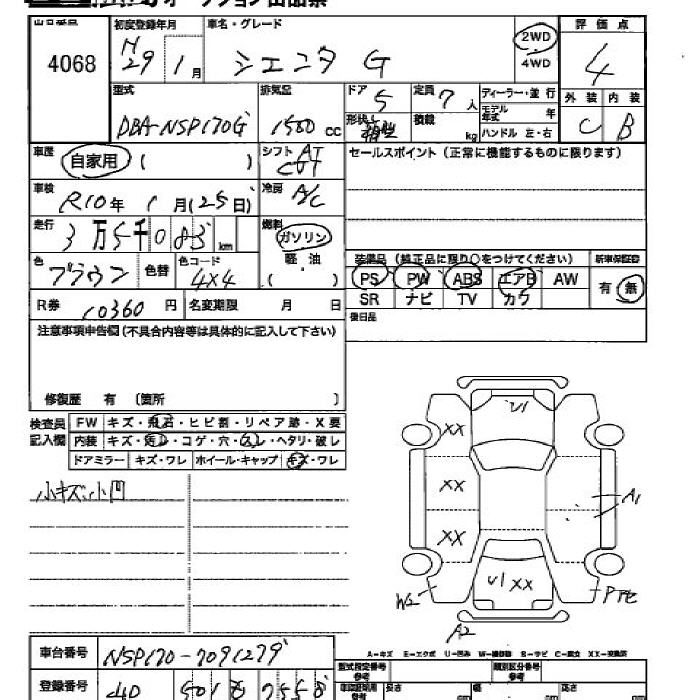 オークション出品票
出品番号 初度登録年月 車名・グレード 2WD 評価点
4068 H29 1月 シエンタ G 4WD 4
型式 排気量 ドア 5 定員 7人 ディーラー・並行 外装 内装
DBA-NSP170G 1500 cc 形状 積載 kg モデル年式 年 C B
ハンドル 左・右
車歴 自家用 ( ) シフト AT セールスポイント(正常に機能するものに限ります)
車検 R10年 1月(25日) 冷房 A/C
走行 3万5千085 km 燃料 ガソリン
軽油
( )
色 ブラウン 色替 色コード 4X4
装備品(純正品に限り○をつけてください) 新車保証書
PS PW ABS エアB AW 有 無
SR ナビ TV カワ
R券 10360 円 名変期限 月 日
後日品
注意事項申告欄(不具合内容等は具体的に記入して下さい)
修復歴 有 〔箇所 〕
検査員記入欄 FW キズ・飛石・ヒビ割・リペア跡・X要
内装 キズ・汚れ・コゲ・穴・スレ・ヘタリ・破レ
ドアミラー キズ・ワレ ホイール・キャップ キズ・ワレ
小キズ、小凹
U1
XX
XX
A1
XX
U1 XX
W2
A2
A-キズ E-エクボ U-凹み W-補修跡 S-サビ C-腐食 XX-交換済
車台番号 NSP170-7091279
型式指定番号 参考 類別区分番号 参考
登録番号 501 長さ cm 幅 cm 高さ cm